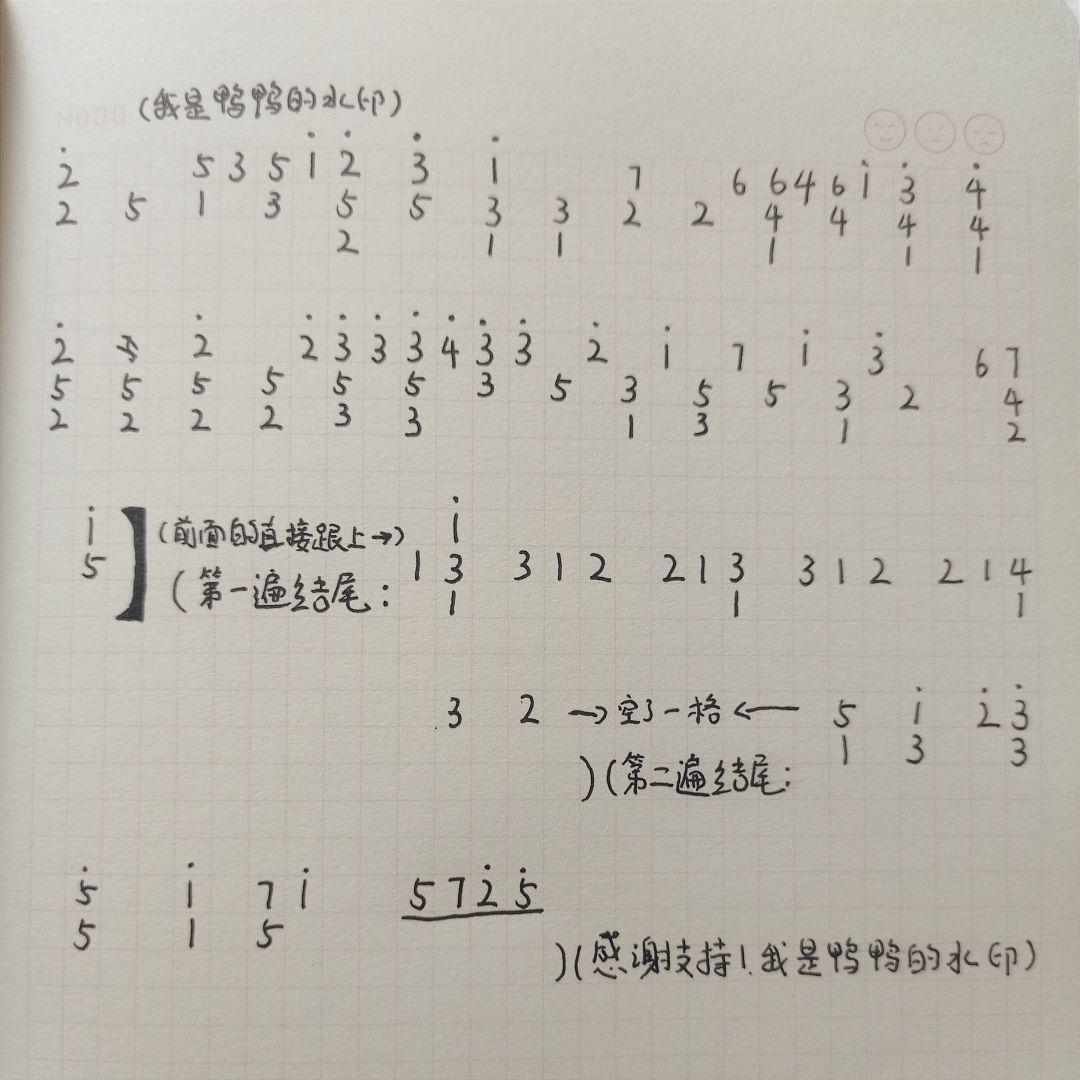 (我是鸭鸭的水印)
2̇ 5 3 5 1̇ 2̇ 3̇ 1̇ 7 6 6 4 6 1̇ 3̇ 4̇
2 5 1 3 5 5 3 3 2 2 4 4 4 4
2 1 1 1 1 1
2̇ 2̇ 2̇ 3̇ 3̇ 3̇ 4̇ 3̇ 3̇ 2̇ 1̇ 7 1̇ 3̇ 6 7
5 5 5 5 5 5 3 5 3 5 5 3 2 4
2 2 2 2 3 3 1 3 1 2
1̇ ] (前面的直接跟上→) 1̇
5 1 3 3 1 2 2 1 3 3 1 2 2 1 4
(第一遍结尾: 1 1 1
3 2 →空了一格← 5 1̇ 2̇ 3̇
1 3 3
)(第二遍结尾:
5̇ 1̇ 7 1̇ 5 7 2̇ 5̇
5 1 5
)(感谢支持!我是鸭鸭的水印)